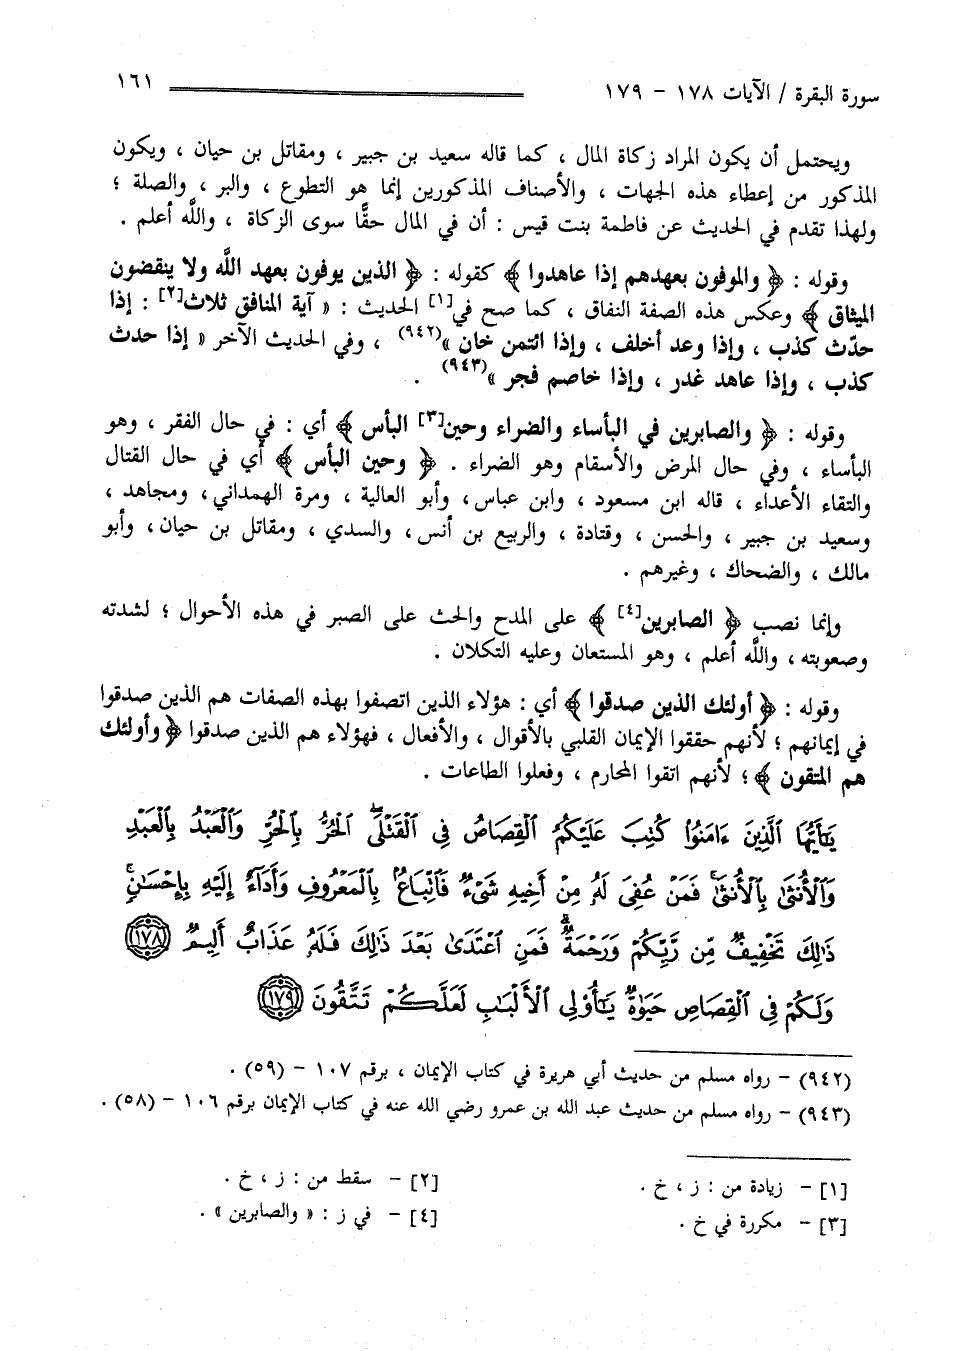 سورة البقرة / الآيات ١٧٨ - ١٧٩ ١٦١
ويحتمل أن يكون المراد زكاة المال ، كما قاله سعيد بن جبير ، ومقاتل بن حيان ، ويكون
المذكور من إعطاء هذه الجهات ، والأصناف المذكورين إنما هو التطوع ، والبر ، والصلة ؛
ولهذا تقدم في الحديث عن فاطمة بنت قيس : أن في المال حقًّا سوى الزكاة ، واللَّه أعلم .
وقوله : ﴿ والموفون بعهدهم إذا عاهدوا ﴾ كقوله : ﴿ الذين يوفون بعهد اللَّه ولا ينقضون
الميثاق ﴾ وعكس هذه الصفة النفاق ، كما صح في[١] الحديث : « آية المنافق ثلاث[٢] : إذا
حدّث كذب ، وإذا وعد أخلف ، وإذا ائتمن خان »(٩٤٢) ، وفي الحديث الآخر « إذا حدث
كذب ، وإذا عاهد غدر ، وإذا خاصم فجر »(٩٤٣) .
وقوله : ﴿ والصابرين في البأساء والضراء وحين[٣] البأس ﴾ أي : في حال الفقر ، وهو
البأساء ، وفي حال المرض والأسقام وهو الضراء . ﴿ وحين البأس ﴾ أي في حال القتال
والتقاء الأعداء ، قاله ابن مسعود ، وابن عباس، وأبو العالية ، ومرة الهمداني، ومجاهد ،
وسعيد بن جبير ، والحسن ، وقتادة ، والربيع بن أنس، والسدي ، ومقاتل بن حيان، وأبو
مالك ، والضحاك ، وغيرهم .
وإنما نصب ﴿ الصابرين[٤] ﴾ على المدح والحث على الصبر في هذه الأحوال ؛ لشدته
وصعوبته، واللَّه أعلم ، وهو المستعان وعليه التكلان .
وقوله : ﴿ أولئك الذين صدقوا ﴾ أي : هؤلاء الذين اتصفوا بهذه الصفات هم الذين صدقوا
في إيمانهم ؛ لأنهم حققوا الإيمان القلبي بالأقوال ، والأفعال ، فهؤلاء هم الذين صدقوا ﴿ وأولئك
هم المتقون ﴾؛ لأنهم اتقوا المحارم ، وفعلوا الطاعات .
يَٰٓأَيُّهَا ٱلَّذِينَ ءَامَنُوا۟ كُتِبَ عَلَيْكُمُ ٱلْقِصَاصُ فِى ٱلْقَتْلَى ۖ ٱلْحُرُّ بِٱلْحُرِّ وَٱلْعَبْدُ بِٱلْعَبْدِ
وَٱلْأُنثَىٰ بِٱلْأُنثَىٰ ۚ فَمَنْ عُفِىَ لَهُۥ مِنْ أَخِيهِ شَىْءٌ فَٱتِّبَاعٌۢ بِٱلْمَعْرُوفِ وَأَدَآءٌ إِلَيْهِ بِإِحْسَٰنٍ ۗ
ذَٰلِكَ تَخْفِيفٌ مِّن رَّبِّكُمْ وَرَحْمَةٌ ۗ فَمَنِ ٱعْتَدَىٰ بَعْدَ ذَٰلِكَ فَلَهُۥ عَذَابٌ أَلِيمٌ ١٧٨
وَلَكُمْ فِى ٱلْقِصَاصِ حَيَوٰةٌ يَٰٓأُو۟لِى ٱلْأَلْبَٰبِ لَعَلَّكُمْ تَتَّقُونَ ١٧٩
(٩٤٢) - رواه مسلم من حديث أبي هريرة في كتاب الإيمان ، برقم ١٠٧ - (٥٩) .
(٩٤٣) - رواه مسلم من حديث عبد الله بن عمرو رضي الله عنه في كتاب الإيمان برقم ١٠٦ - (٥٨) .
[١] - زيادة من : ز ، خ . [٢] - سقط من : ز ، خ .
[٣] - مكررة في خ . [٤] - في ز : « والصابرين » .